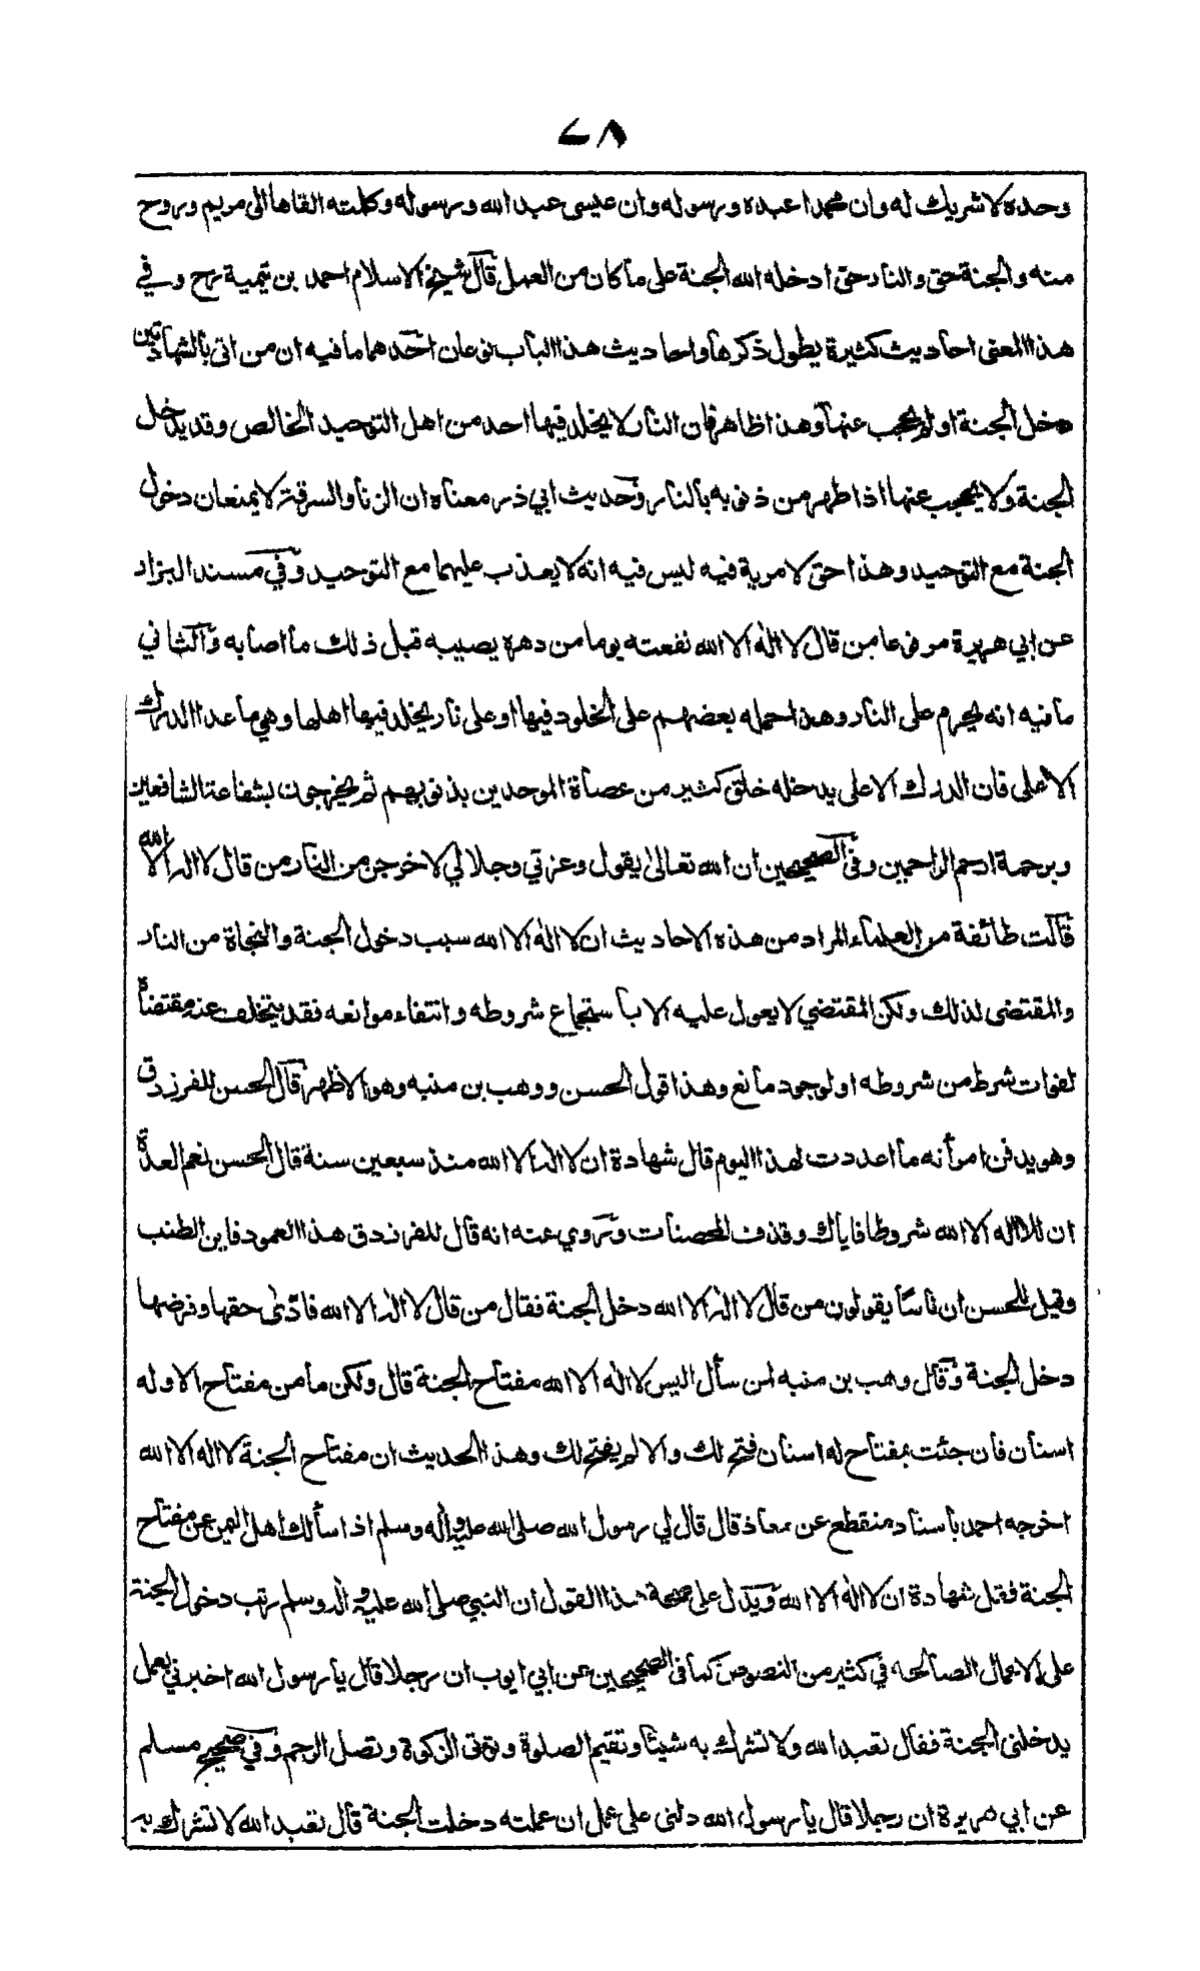 ٤٨
وحده لا شريك له وان محمدا عبده ورسوله وان عيسى عبد الله ورسوله وكلمته القاها الى مريم وروح
منه والجنة حق والنار حق ادخله الله الجنة على ما كان من العمل قال شيخ الاسلام احمد بن تيمية رح وفي
هذا المعنى احاديث كثيرة يطول ذكرها واحاديث هذا الباب نوعان احدهما ما فيه ان من اتى بالشهادتين
دخل الجنة او لم يحجب عنها وهذا ظاهر فان النار لا يخلد فيها احد من اهل التوحيد الخالص وقد يدخل
الجنة ولا يحجب عنها اذا طهر من ذنوبه بالنار وحديث ابي ذر معناه ان الزنا والسرقة لا يمنعان دخول
الجنة مع التوحيد وهذا حق لا مرية فيه ليس فيه انه لا يعذب عليهما مع التوحيد وفي مسند البزار
عن ابي هريرة مرفوعا من قال لا اله الا الله نفعته يوما من دهره يصيبه قبل ذلك ما اصابه والثاني
ما فيه انه يحرم على النار وهذا حمله بعضهم على الخلود فيها او على نار يخلد فيها اهلها وهي ما عدا الدرك
الاعلى فان الدرك الاعلى يدخله خلق كثير من عصاة الموحدين بذنوبهم ثم يخرجون بشفاعة الشافعين
وبرحمة ارحم الراحمين وفى الصحيحين ان الله تعالى يقول وعزتي وجلالي لاخرجن من النار من قال لا اله الا الله
قالت طائفة من العلماء المراد من هذه الاحاديث ان لا اله الا الله سبب دخول الجنة والنجاة من النار
والمقتضى لذلك ولكن المقتضي لا يعول عليه الا باستجماع شروطه وانتفاء موانعه فقد يتخلف عنه مقتضاه
لفوات شرط من شروطه او لوجود مانع وهذا قول الحسن ووهب بن منبه وهو الاظهر قال الحسن للفرزدق
وهو يدفن امرأته ما اعددت لهذا اليوم قال شهادة ان لا اله الا الله منذ سبعين سنة قال الحسن نعم العدة
ان للا اله الا الله شروطا فاياك وقذف المحصنات وتروي عنه انه قال للفرزدق هذا العمود فاين الطنب
وقيل للحسن ان ناسا يقولون من قال لا اله الا الله دخل الجنة فقال من قال لا اله الا الله فادّى حقها وفرضها
دخل الجنة وقال وهب بن منبه لمن سأل اليس لا اله الا الله مفتاح الجنة قال ولكن ما من مفتاح الا وله
اسنان فان جئت بمفتاح له اسنان فتح لك والا لم يفتح لك وهذا الحديث ان مفتاح الجنة لا اله الا الله
اخرجه احمد باسناد منقطع عن معاذ قال قال لي رسول الله صلى الله عليه وآله وسلم اذا سألك اهل اليمن عن مفتاح
الجنة فقل شهادة ان لا اله الا الله ويدل على صحة هذا القول ان النبي صلى الله عليه وآله وسلم رتب دخول الجنة
على الاعمال الصالحه في كثير من النصوص كما فى الصحيحين عن ابي ايوب ان رجلا قال يا رسول الله اخبرني بعمل
يدخلنى الجنة فقال تعبد الله ولا تشرك به شيئا وتقيم الصلوة وتوتى الزكوة وتصل الرحم وفي صحيح مسلم
عن ابي هريرة ان رجلا قال يا رسول الله دلنى على عمل ان عملته دخلت الجنة قال تعبد الله لا تشرك به